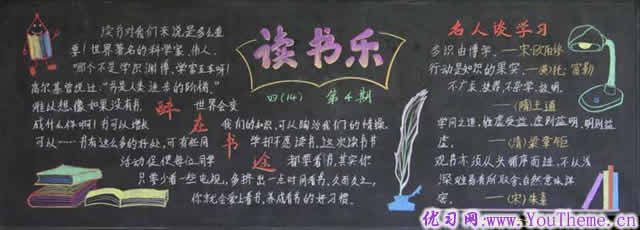 读书乐
四(14) 第4期
读书对我们来说是多么重
要!世界著名的科学家、伟人,
哪个不是学识渊博,学富五车啊!
高尔基曾说过:"书是人类进步的阶梯。"
难以想像如果没有 世界会变
成什么样啊!书可以增长 我们的知识,可以陶冶我们的情操,
可以……书有这么多的好处,可有些同 学却不愿读书,这次读书节
活动促使每位同学 都要看书,其实你
只要少看一些电视,多挤出一点时间看书,久而久之,
你就会爱上看书,养成看书的好习惯。
醉在书途
名人谈学习
多识由博学。——宋·欧阳修
行动是知识的果实。——(英)托·富勒
不广求,故得,不杂学,故明。
——(隋)王通
学问之道,
——(清)梁章钜
观书亦须从头循序而进,不以浅
深难易有所取舍,自然意味详
密。——(宋)朱熹
优习网 www.YouTheme.cn